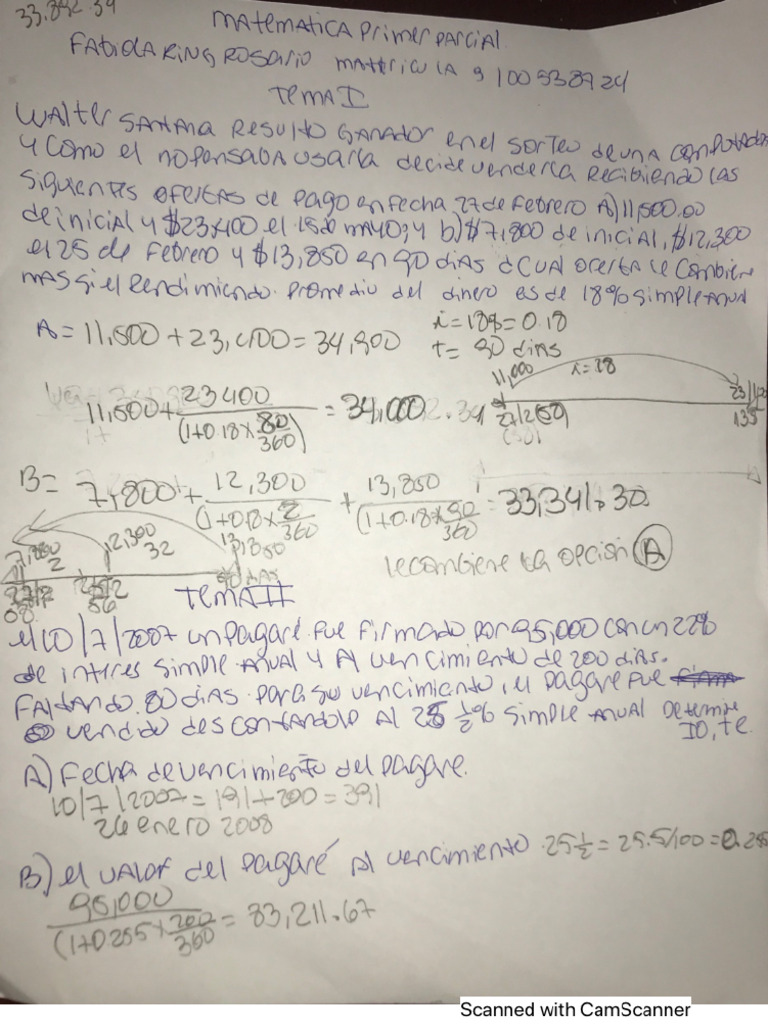 33.892.39
Matematica Primer Parcial
Fabiola King Rosario matricula 9 100538924
Tema I
Walter Santana Resulto Ganador en el sorteo de una computadora
y como el no pensaba usarla decide venderla Recibiendo las
siguientes ofertas de pago en fecha 27 de febrero A) 11,500.00
de inicial y $23,400 el 15 de mayo; y b) $7,800 de inicial, $12,300
el 25 de Febrero y $13,850 en 90 dias ¿Cual oferta le combiene
mas si el Rendimiendo promedio del dinero es de 18% simple anual
A = 11,500 + 23,400 = 34,900 i = 18% = 0.18
t = 80 dias
11,500 + 23400 / (1+0.18 x 80/360) = 34,000
11,000 i = 18
B = 7,800 + 12,300 / (1+0.18 x 2/360) + 13,850 / (1+0.18 x 90/360) = 33,341.30
le combiene la opcion A
7,800 2 12,300 32 13,850
90 dias
Tema II
el 10/7/2007 un pagaré fue firmado por 95,000 con un 22%
de interes simple anual y Al vencimiento de 200 dias.
Faltando 80 dias para su vencimiento, el pagare fue
vendido descontandolo Al 25 1/2 % simple anual Determine
ID, te
A) Fecha de vencimiento del pagare.
10/7/2007 = 191 + 200 = 391
26 enero 2008
B) el valor del pagaré Al vencimiento 25 1/2 = 25.5/100 = 0.255
95,000 / (1+0.255 x 200/360) = 83,211.67
Scanned with CamScanner